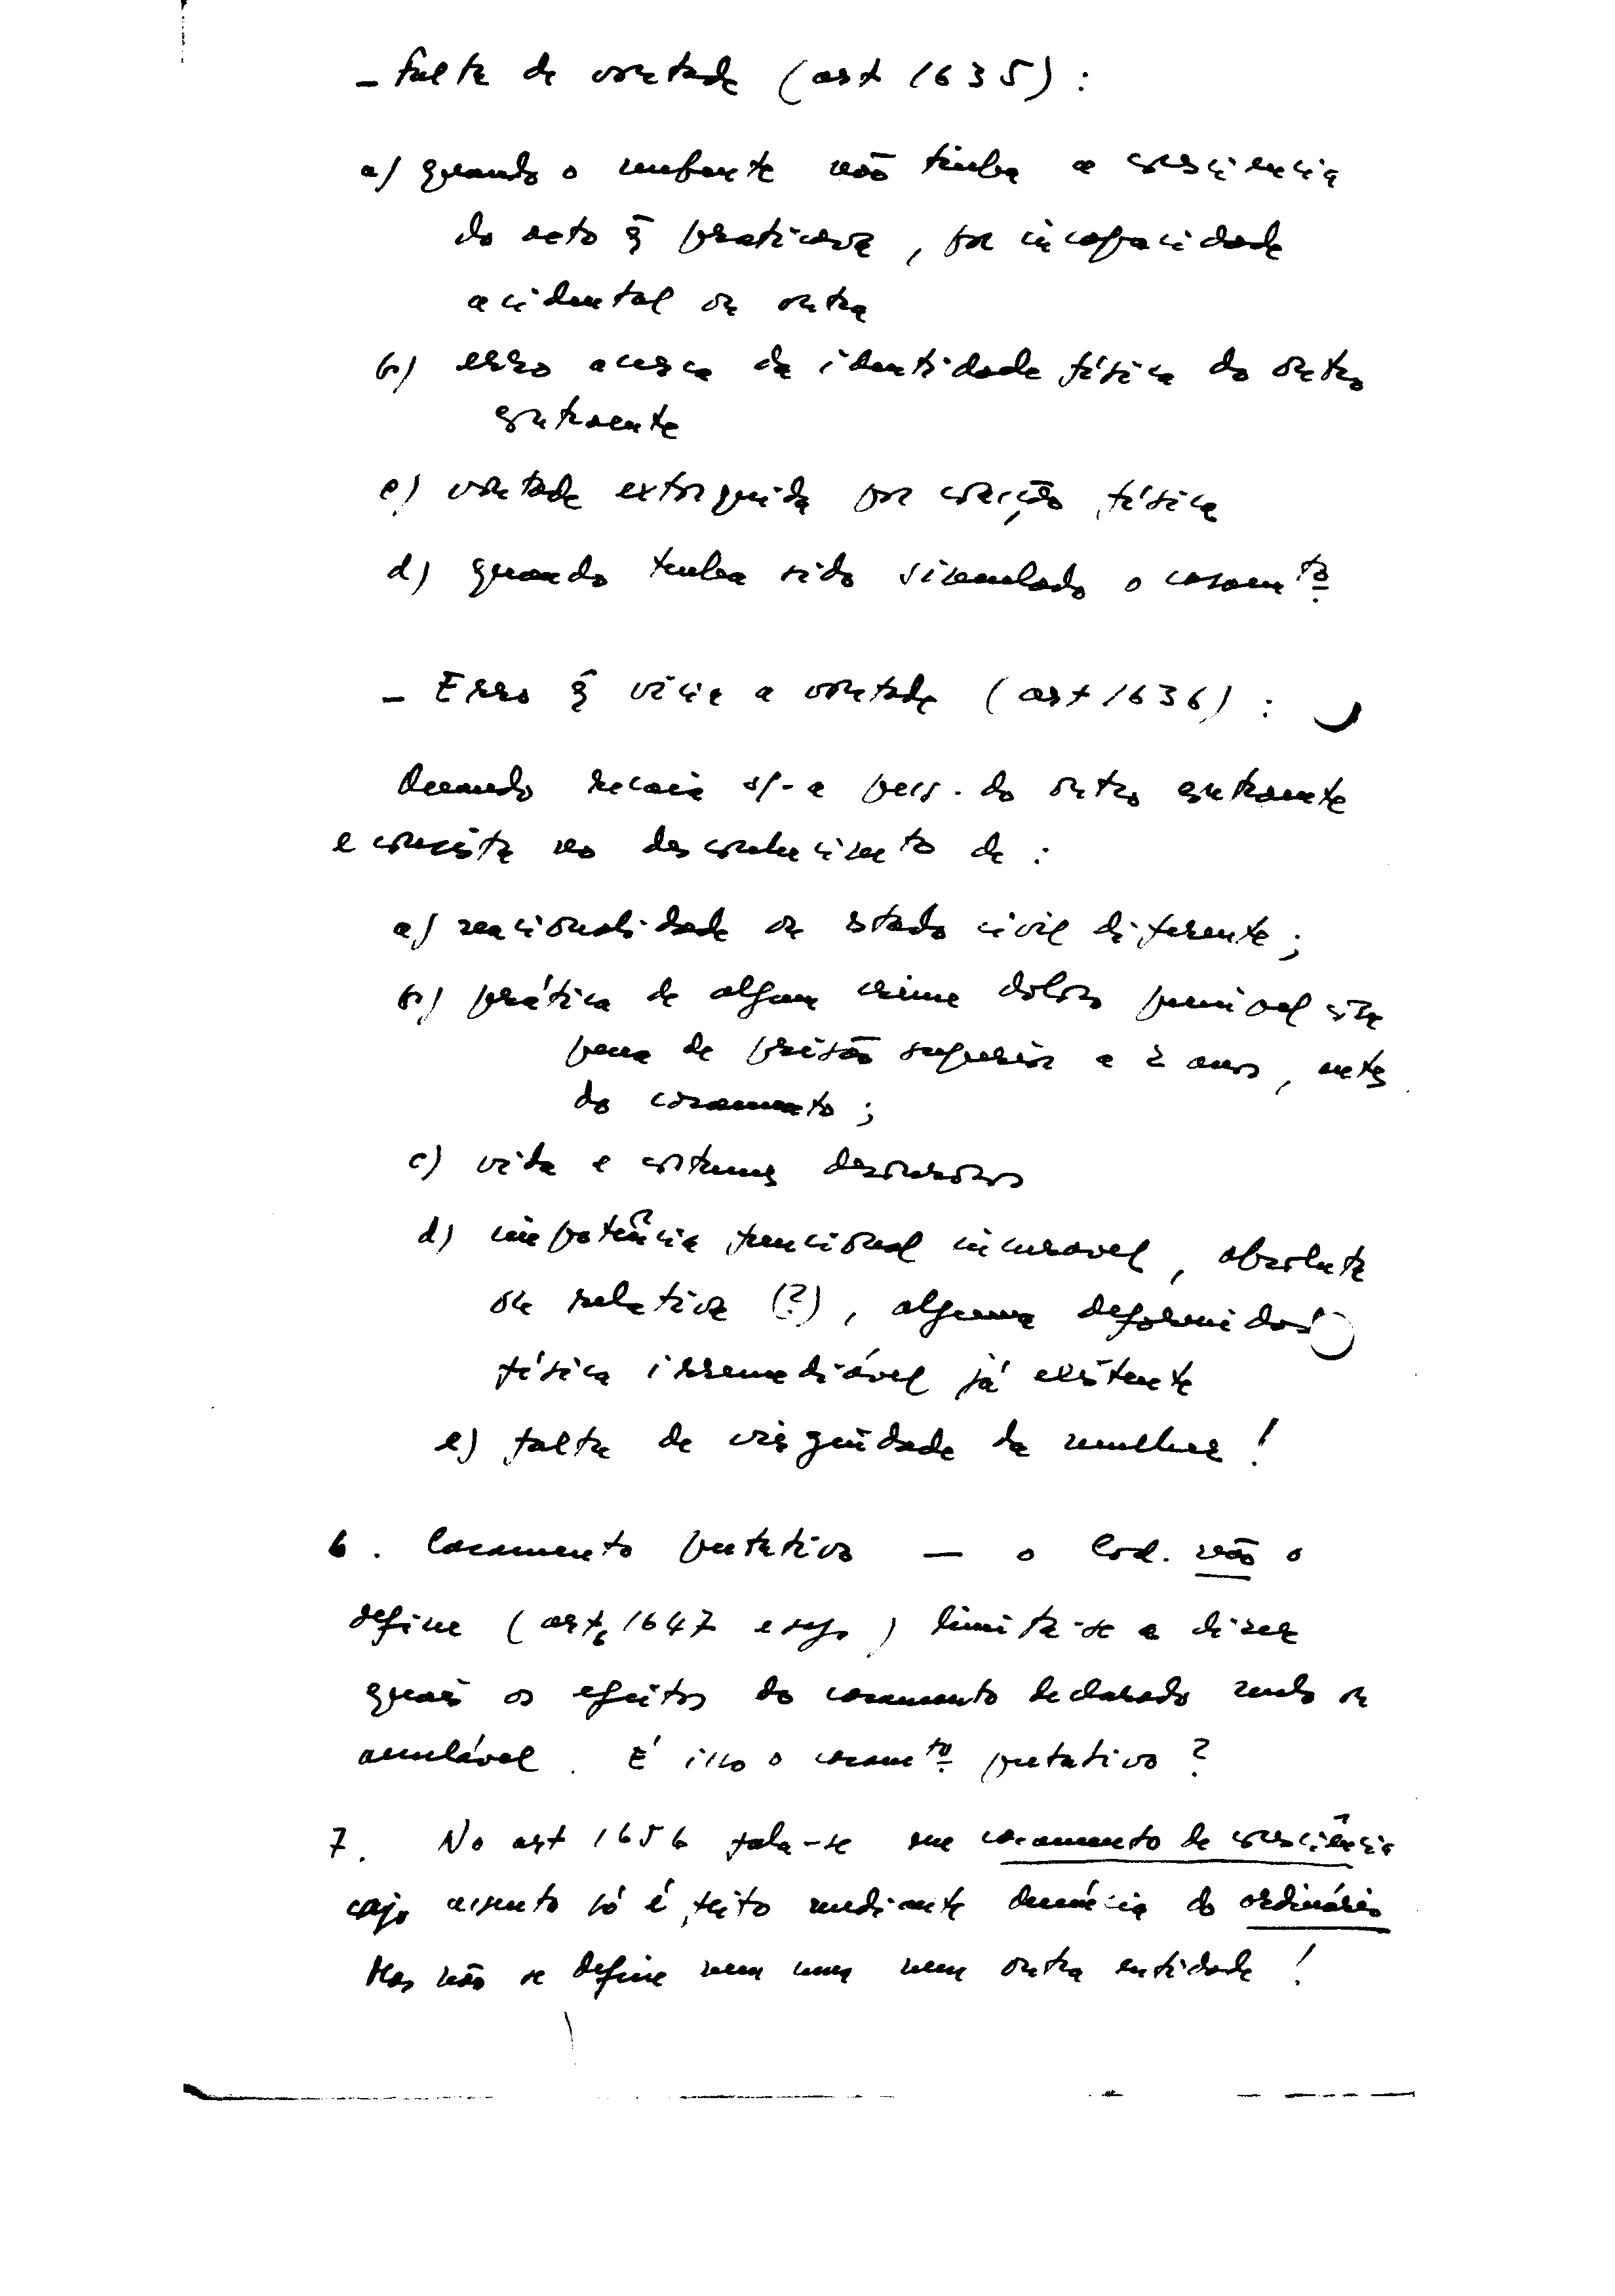 - falta de vontade (art 1635) :
a) quando o nubente não tinha a consciência
do acto q̃ praticava, por incapacidade
acidental ou outra
b) erro acerca da identidade física do outro
contraente
c) vontade extorquida por coacção física
d) quando tenha sido simulado o casamtº.
- Erro q̃ vicia a vontade (art 1636) :
Quando recaia s/- a pess. do outro contraente
e consista no desconhecimento de :
a) nacionalidade ou estado civil diferente;
b) prática de algum crime doloso punível com
pena de prisão superior a 2 anos, antes
do casamento;
c) vida e costumes desonrosos
d) impotência funcional incurável, absoluta
ou relativa (?), alguma deformidade
física irremediável já existente
e) falta de virgindade da mulher !
6. Casamento putativo — o Cod. não o
define (arts 1647 e segs) limita-se a dizer
quais os efeitos do casamento declarado nulo ou
anulável. É isso o casamtº putativo ?
7. No art 1656 fala-se em casamento de consciência
cujo assento só é feito mediante denúncia do ordinário
Mas não se define nem uma nem outra entidade !